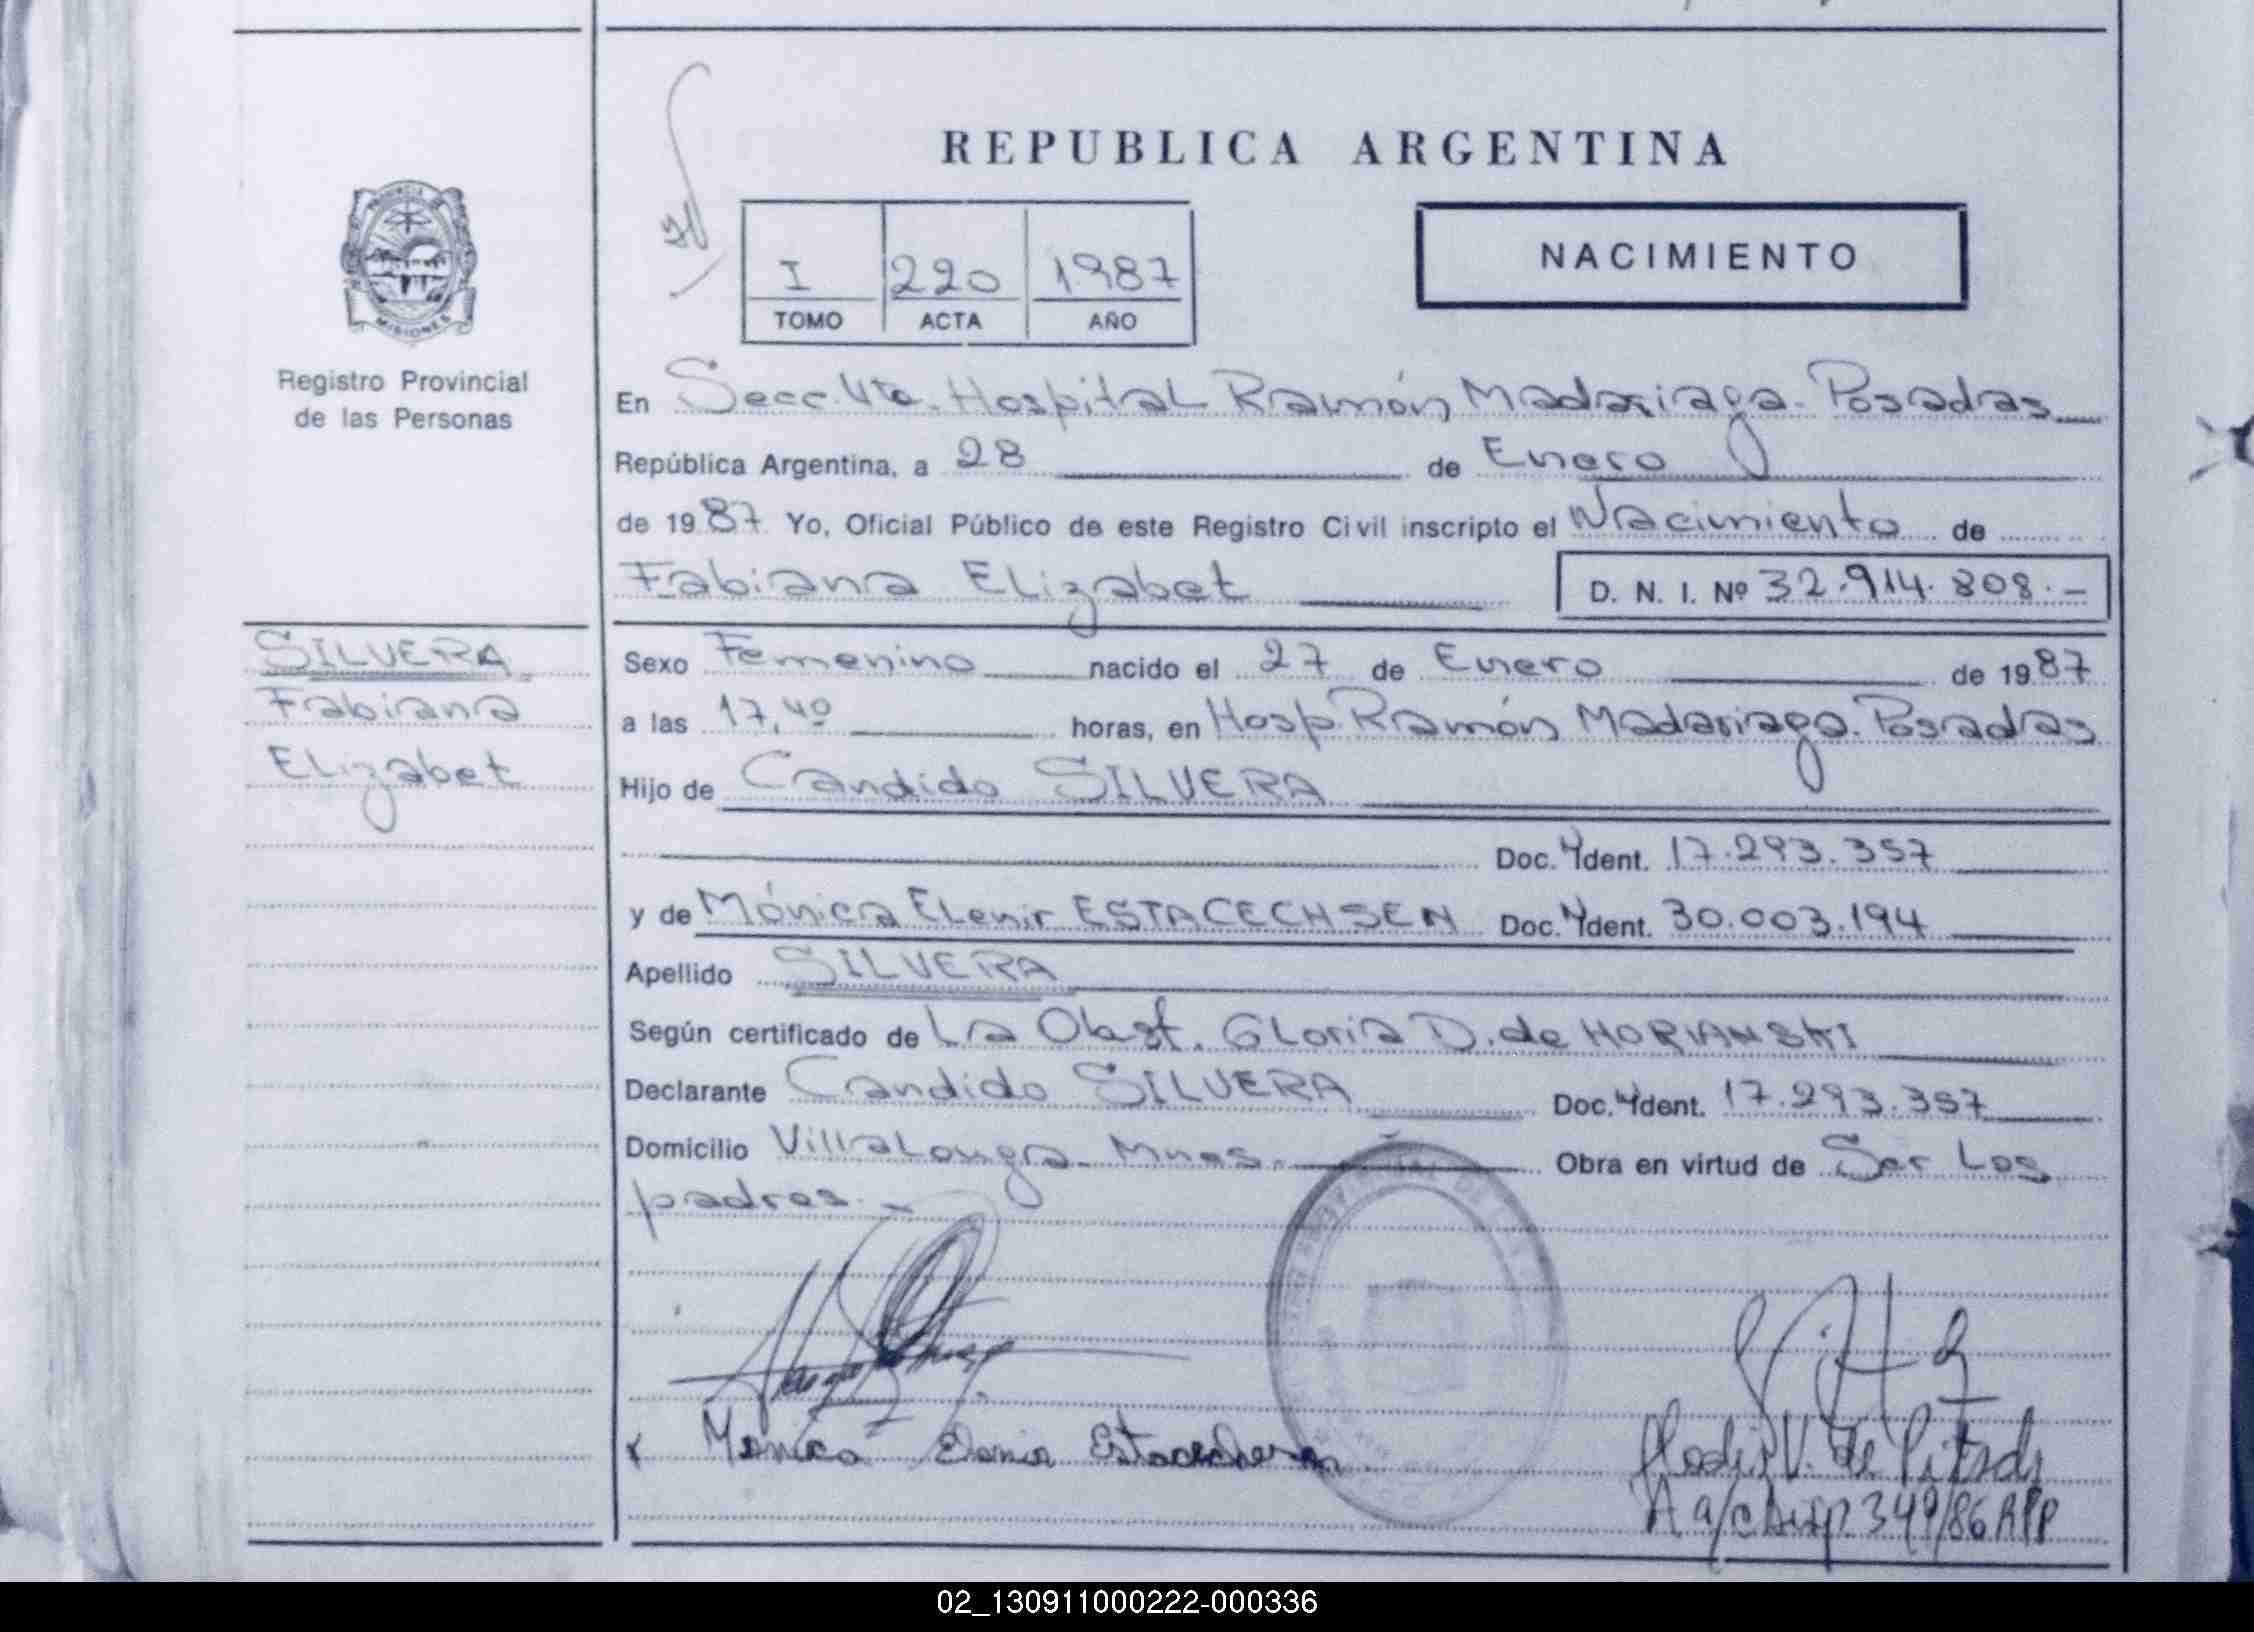 REPUBLICA ARGENTINA
PROVINCIA DE
MISIONES
Registro Provincial
de las Personas
I 220 1987
TOMO ACTA AÑO
NACIMIENTO
En Secc. 4ta. Hospital Ramón Madariaga. Posadas
República Argentina, a 28 de Enero
de 1987 Yo, Oficial Público de este Registro Civil inscripto el Nacimiento de
Fabiana Elizabet D. N. I. Nº 32.914.808.-
SILVERA
Fabiana
Elizabet
Sexo Femenino nacido el 27 de Enero de 1987
a las 17,40 horas, en Hosp. Ramón Madariaga. Posadas
Hijo de Candido SILVERA
Doc. Ydent. 17.293.357
y de Mónica Elenir ESTACECHSEN Doc. Ydent. 30.003.194
Apellido SILVERA
Según certificado de La Obst. Gloria D. de HORIANSKI
Declarante Candido SILVERA Doc. Ydent. 17.293.357
Domicilio Villalonga - Mnes. Obra en virtud de Ser Los
padres.-
x Monica Elenir Estacechsen
V. de
349/86
02_130911000222-000336